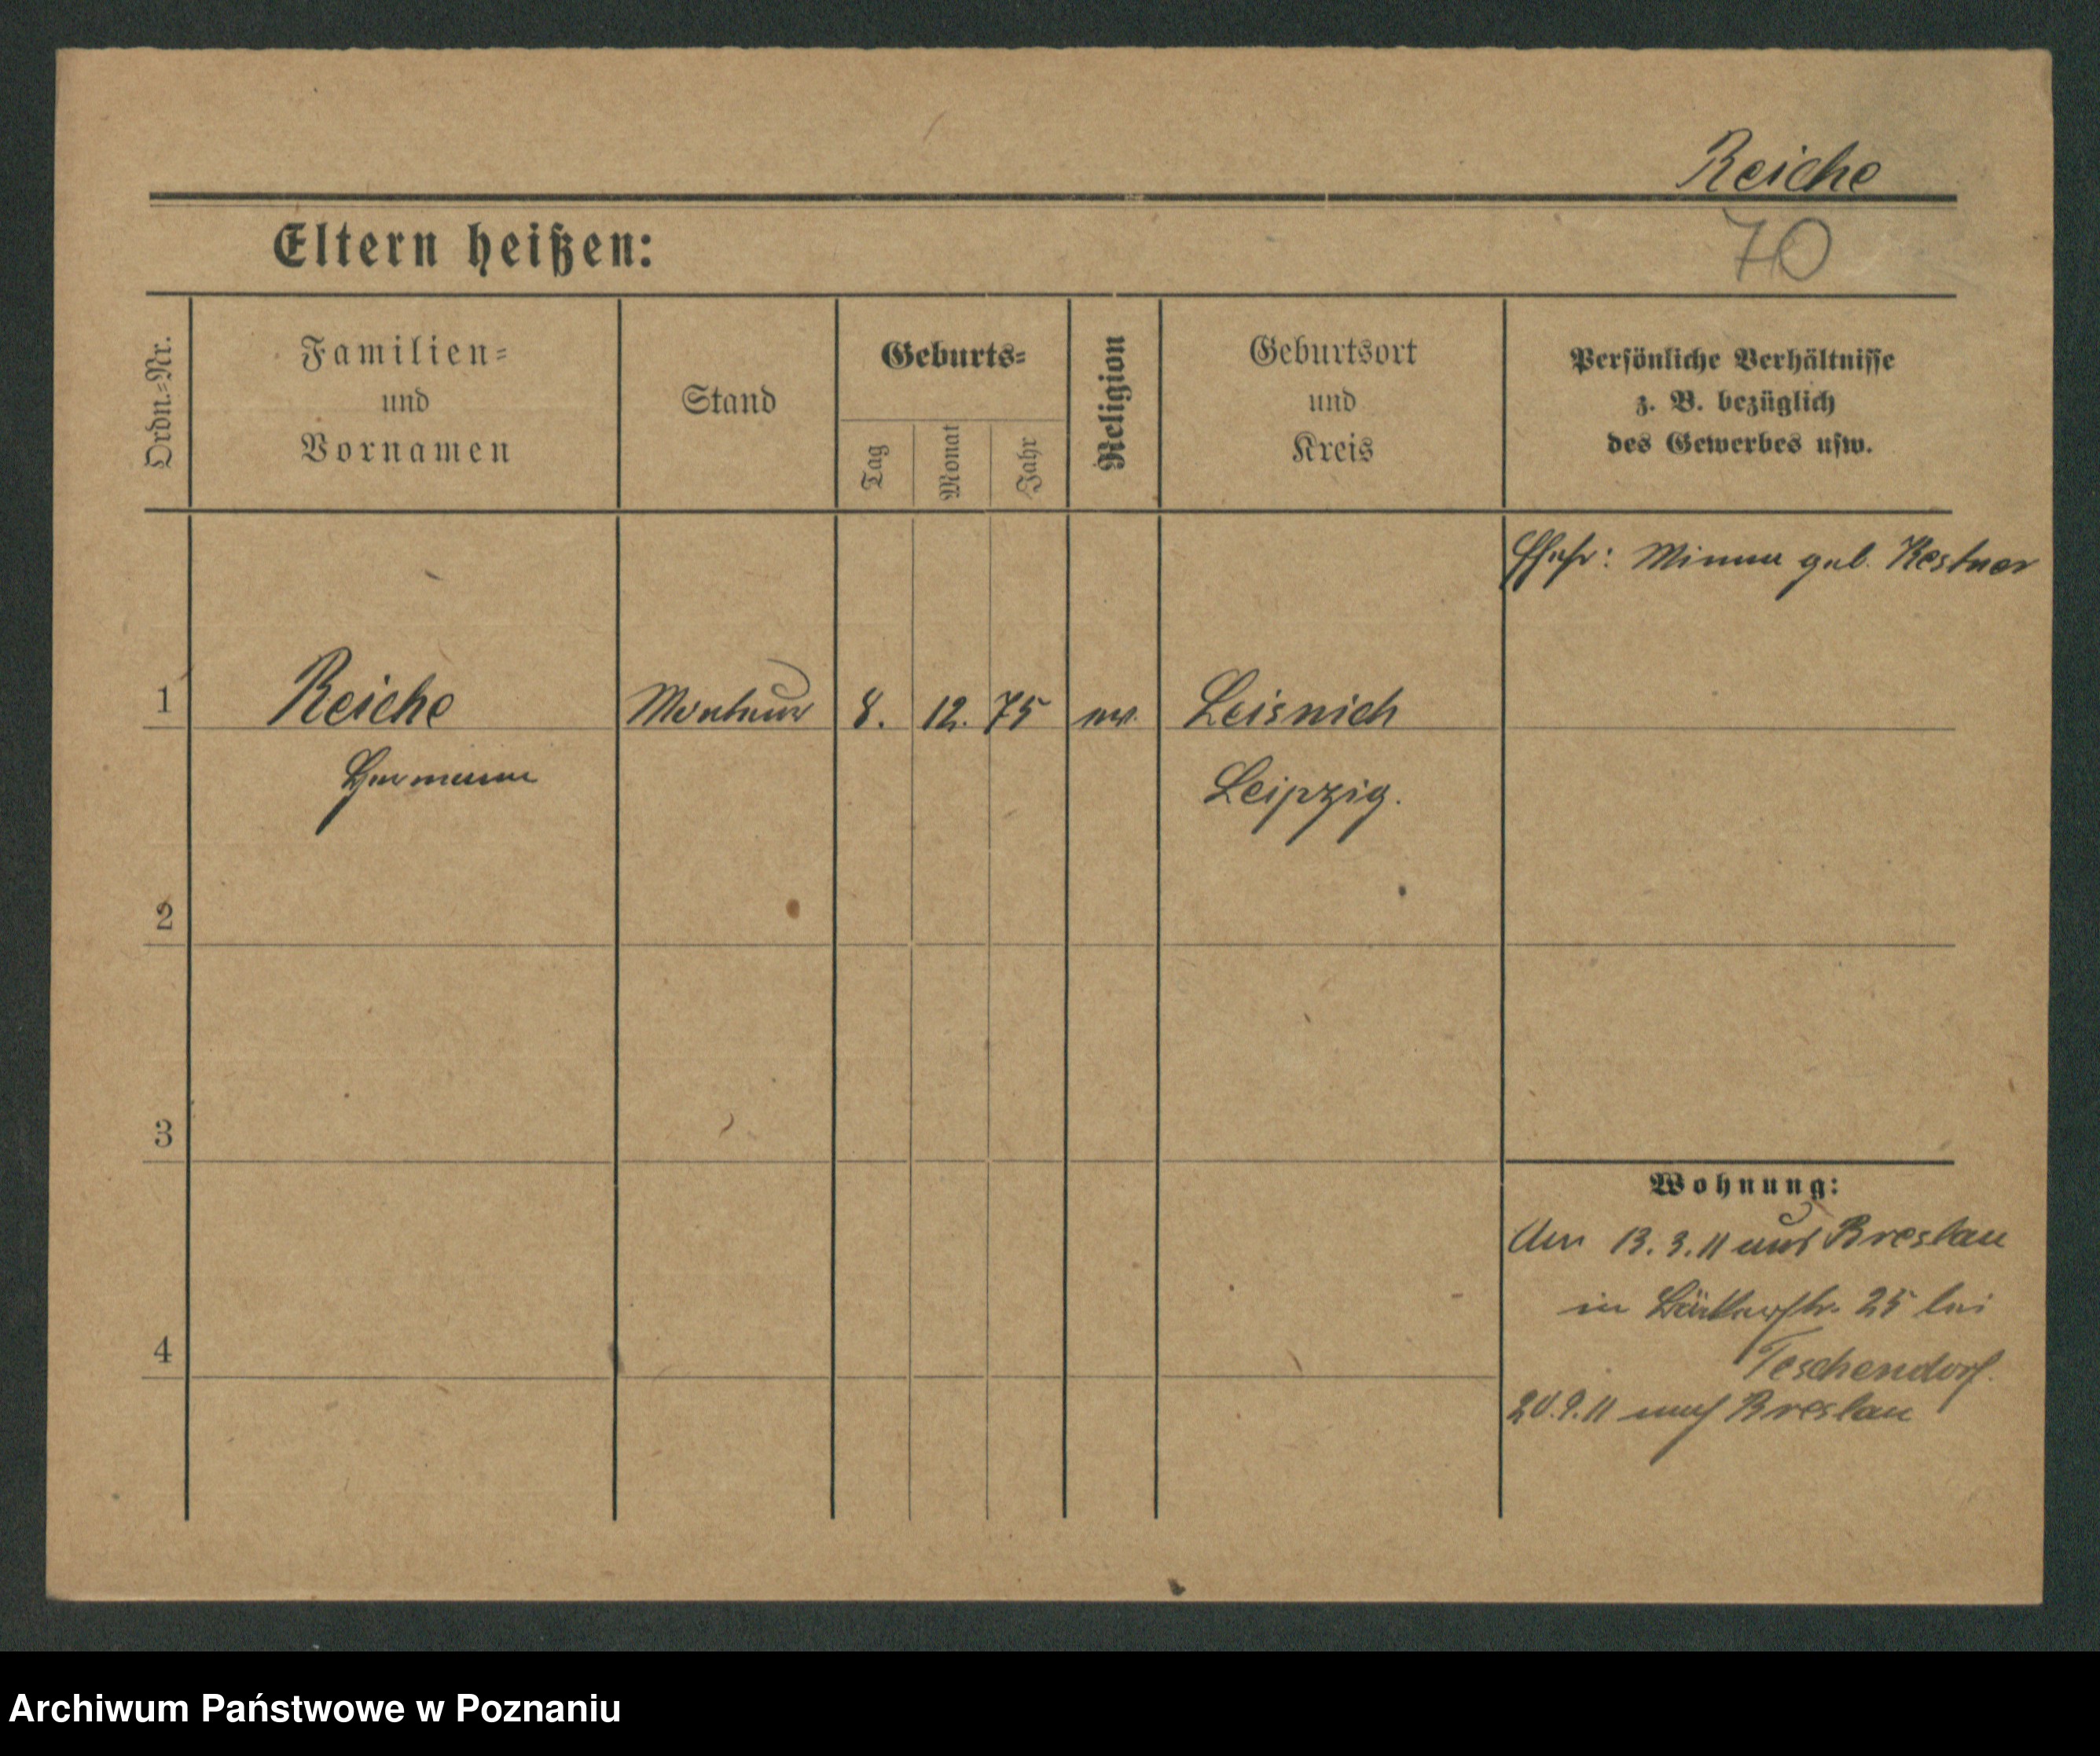 Reiche
70
Eltern heißen:
Ordn.=Nr.
Familien=
und
Vornamen
Stand
Geburts=
Tag
Monat
Jahr
Religion
Geburtsort
und
Kreis
Persönliche Verhältnisse
z. B. bezüglich
des Gewerbes usw.
Ehefr: Minna geb. Kestner
1
Reiche Monteur 8. 12. 75 ev. Leisnich
Hermann Leipzig.
2
3
4
Wohnung:
Am 13.3.11 aus Breslau
in 25 bei
Teschendorf.
20.9.11 nach Breslau
Archiwum Państwowe w Poznaniu